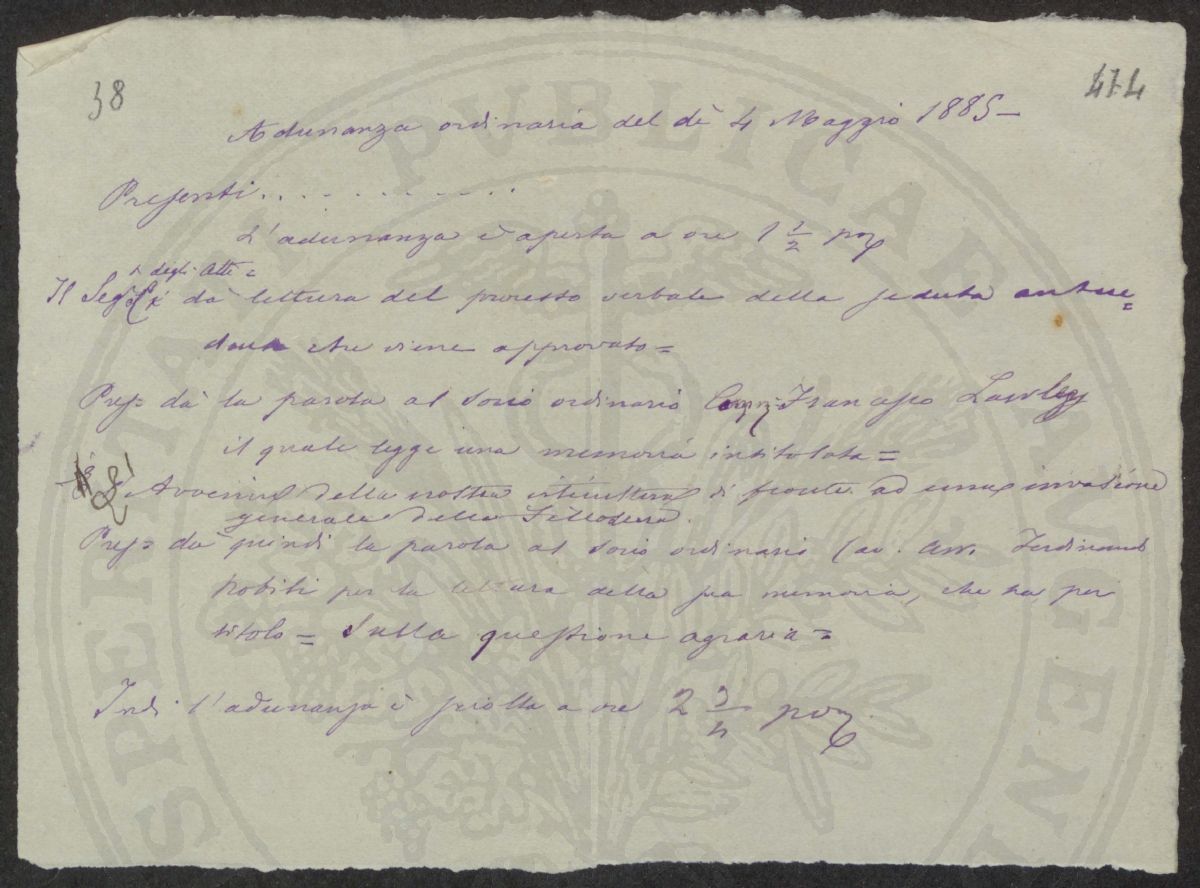 38
414
Adunanza ordinaria del dì 4 Maggio 1885 -
Presenti . . . . . . . . . . . .
L'adunanza è aperta a ore 1 1/2 pom
degli Atti =
Il Seg dà lettura del processo verbale della seduta antece=
dente che viene approvato =
Pres= dà la parola al socio ordinario Francesco Lawley
il quale legge una memoria intitolata =
L'Avvenire della nostra viticultura di fronte ad una invasione
generale della Fillossera.
Pres= dà quindi la parola al socio ordinario Cav. Avv. Ferdinando
Nobili per la lettura della sua memoria, che ha per
titolo = Sulla questione agraria =
Indi l'adunanza è sciolta a ore 2 3/4 pom
PROSPERITATI PVBLICAE AVGENDAE